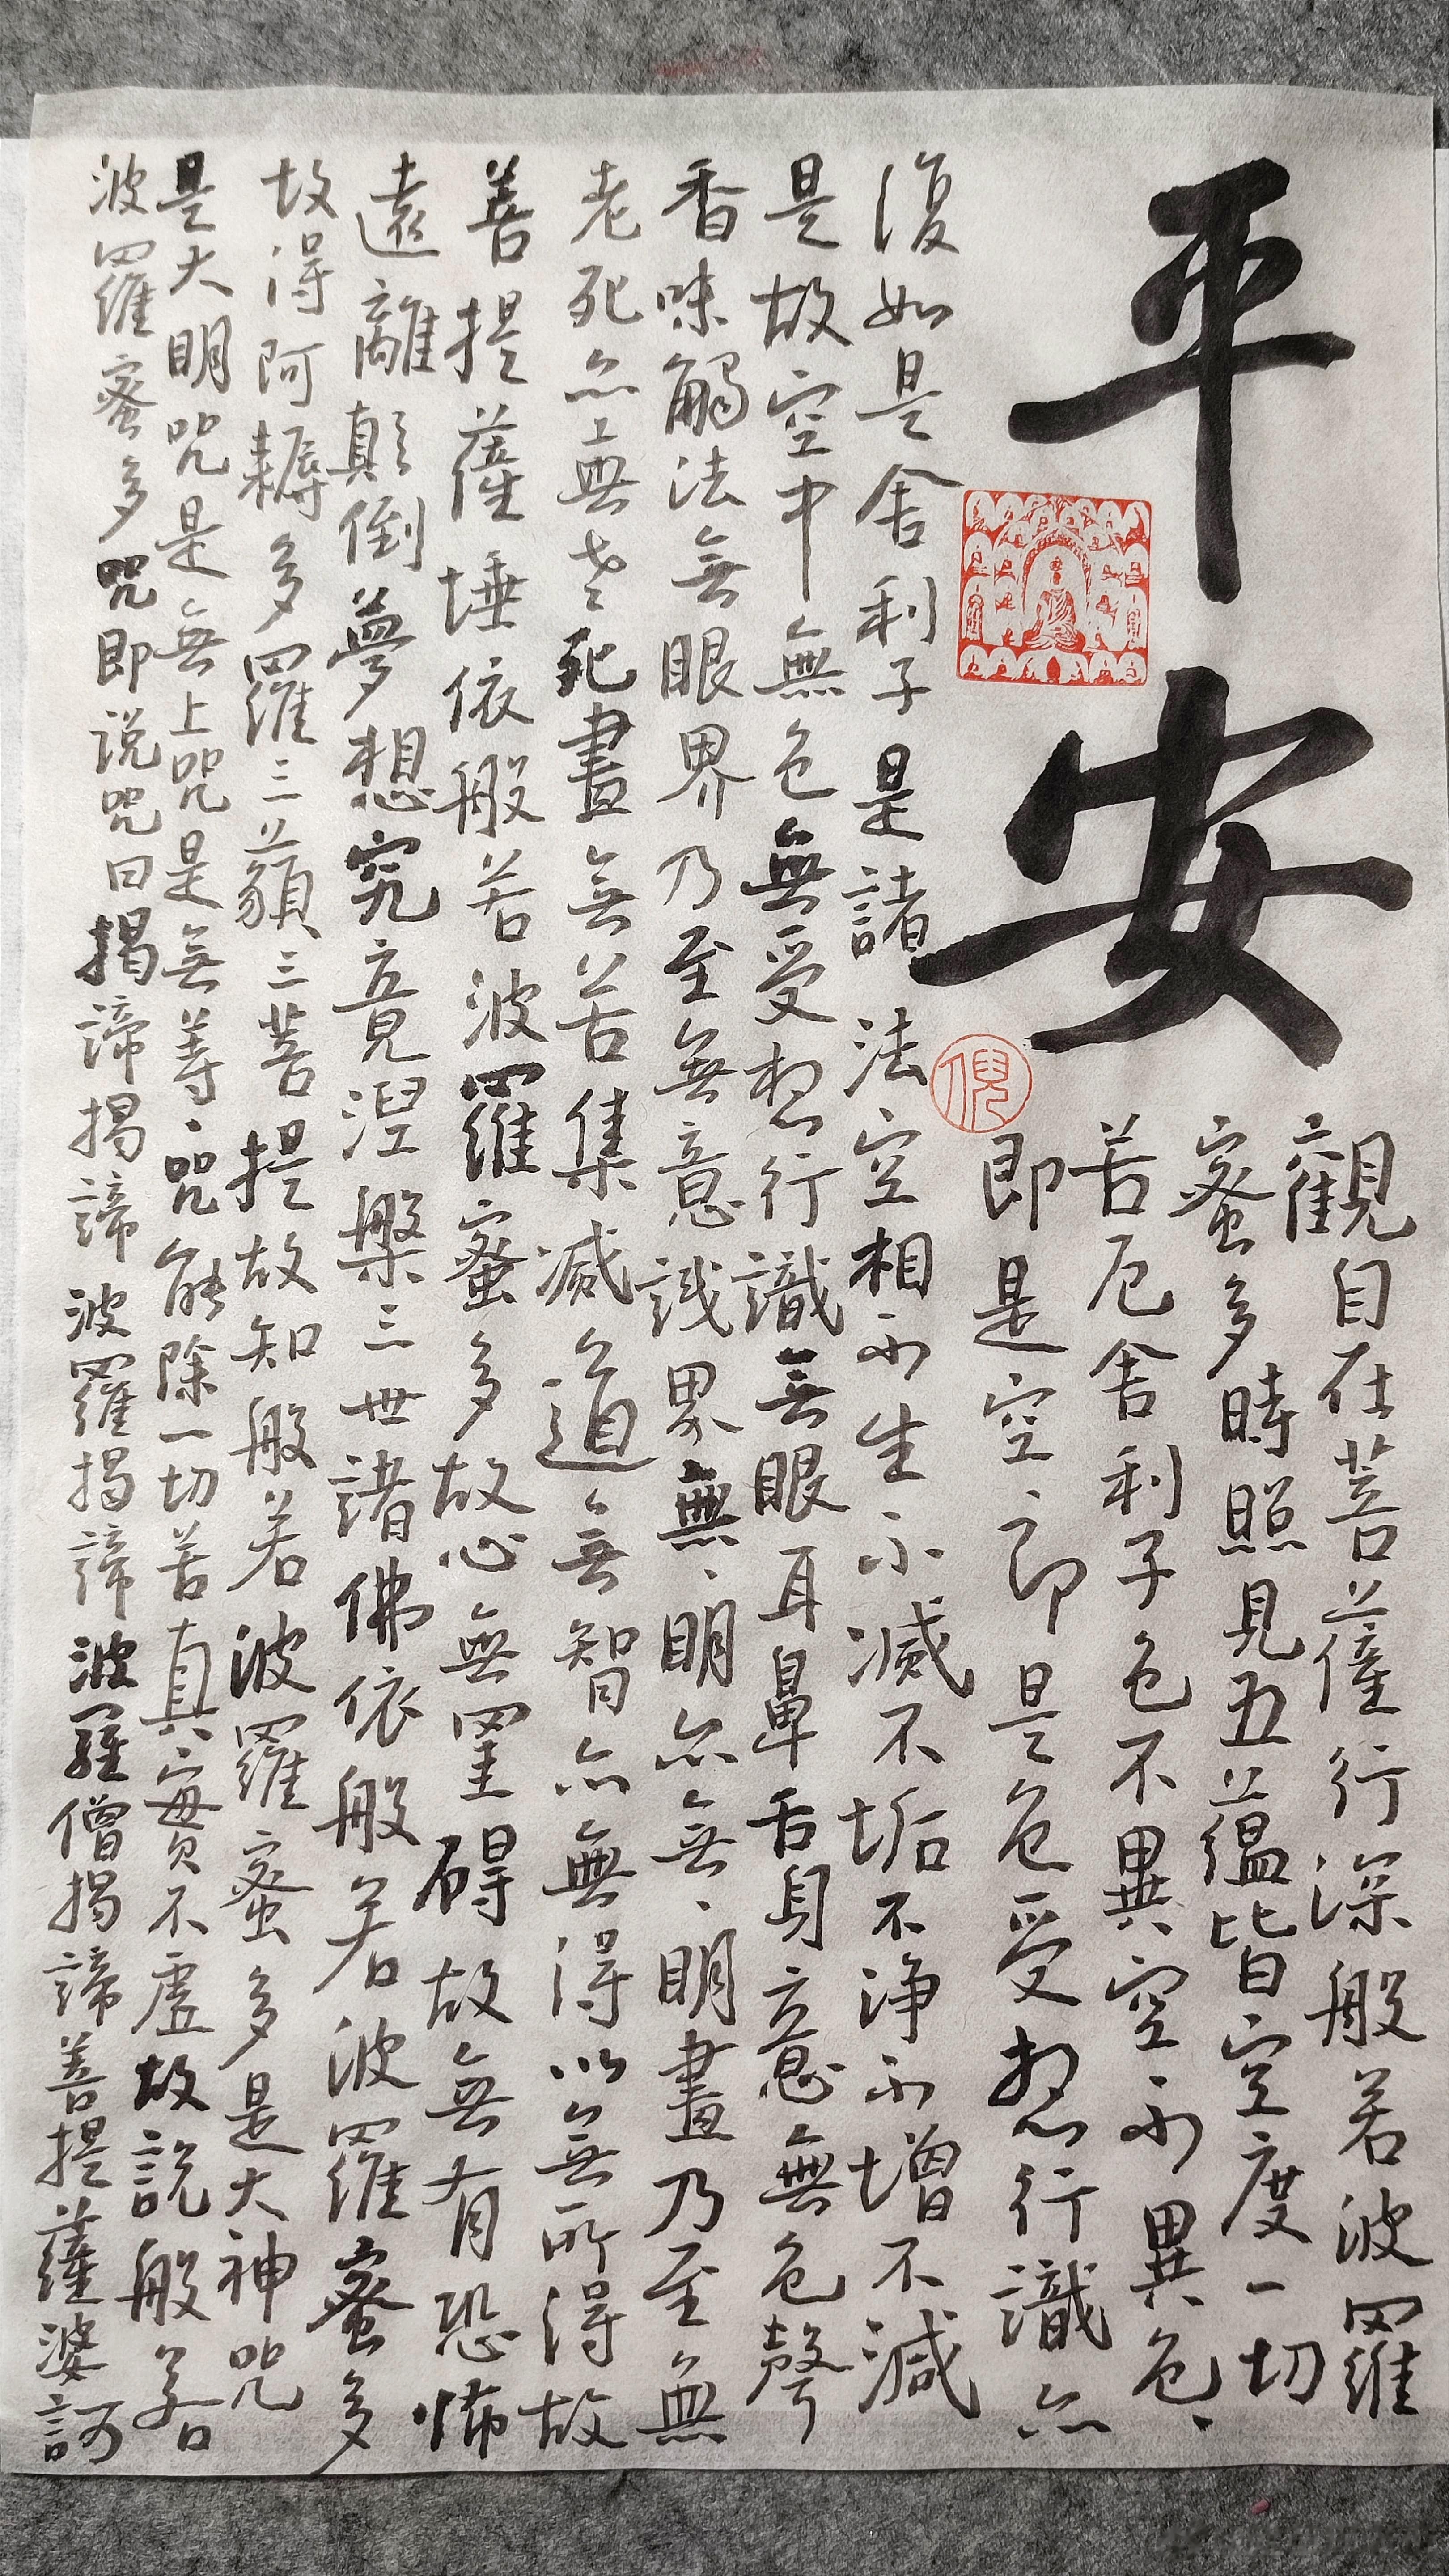 平安
觀自在菩薩行深般若波羅
蜜多時照見五蘊皆空度一切
苦厄舍利子色不異空不異色、
即是空、即是色受想行識亦
復如是舍利子是諸法空相不生不滅不垢不淨不增不減
是故空中無色無受想行識無眼耳鼻舌身意無色聲
香味觸法無眼界乃至無意識界無、明亦無、明盡乃至無
老死亦無老死盡無苦集滅道無智亦無得以無所得故
菩提薩埵依般若波羅蜜多故心無罣碍故無有恐怖
遠離顛倒夢想究竟涅槃三世諸佛依般若波羅蜜多
故得阿耨多羅三藐三菩提故知般若波羅蜜多是大神咒
是大明咒是無上咒是無等、咒能除一切苦真實不虛故說般若
波羅蜜多咒即说咒曰揭諦揭諦波羅揭諦波羅僧揭諦菩提薩婆訶
倪